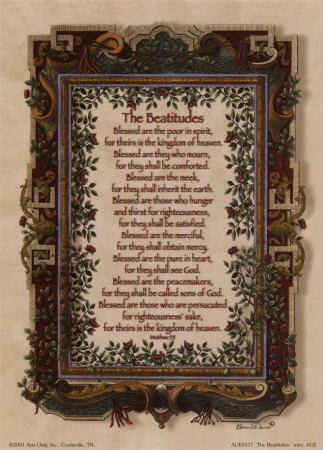 The Beatitudes
Blessed are the poor in spirit,
for theirs is the kingdom of heaven.
Blessed are they who mourn,
for they shall be comforted.
Blessed are the meek,
for they shall inherit the earth.
Blessed are those who hunger
and thirst for righteousness,
for they shall be satisfied.
Blessed are the merciful,
for they shall obtain mercy.
Blessed are the pure in heart,
for they shall see God.
Blessed are the peacemakers,
for they shall be called sons of God.
Blessed are those who are persucuted
for righteousness' sake,
for theirs is the kingdom of heaven.
©2001 Arts Uniq' Inc., Cookeville, TN.
AUE0317 The Beatitudes - mini AUE